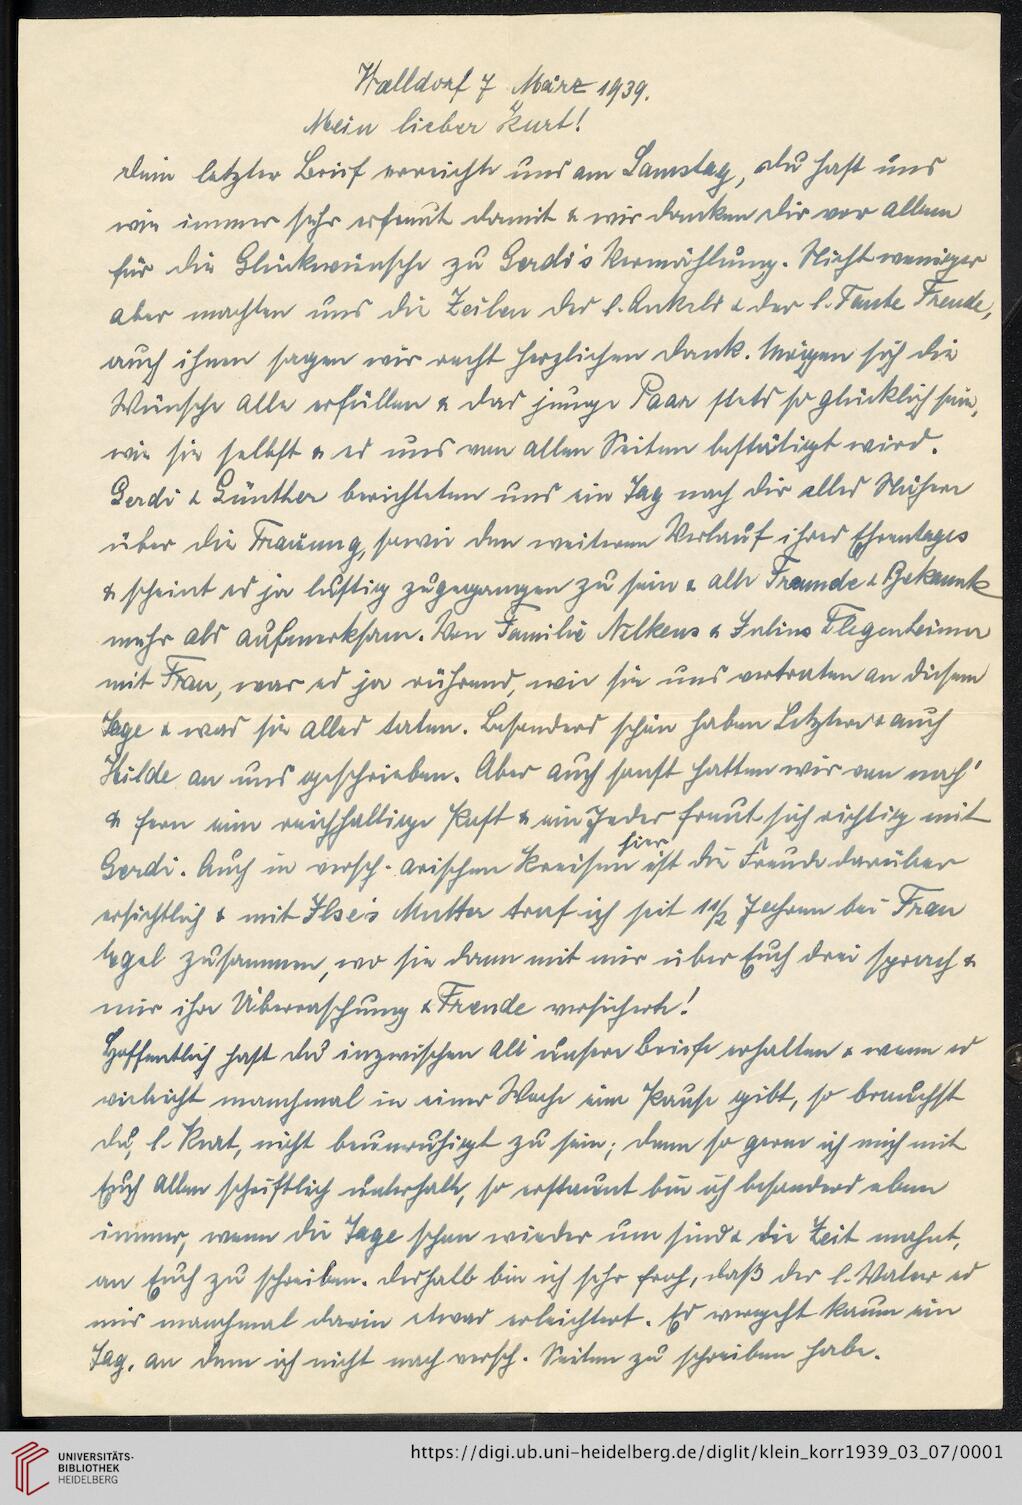 Walldorf 7 März 1939.
Mein lieber Kurt!
Dein letzter Brief erreichte uns am Samstag, Du hast uns
wie immer sehr erfreut damit & wir danken Dir vor allem
für die Glückwünsche zu Gerdi's Vermählung. Nicht weniger
aber machten uns die Zeilen des l. Onkels & der l. Tante Freude,
auch ihnen sagen wir recht herzlichen Dank. Mögen sich die
Wünsche alle erfüllen & das junge Paar stets so glücklich sein,
wie sie selbst & es uns von allen Seiten bestätigt wird.
Gerdi & Günther berichteten uns ein Tag nach Dir alles Nähere
über die Trauung, sowie den weiteren Verlauf ihres Ehrentages
& scheint es ja lustig zugegangen zu sein & alle Freunde & Bekannte
mehr als aufmerksam. Von Familie Nelkens & Julius Flegenheimer
mit Frau, war es ja rührend, wie sie uns vertraten an diesem
Tage & was sie alles taten. Besonders schön haben Letztere & auch
Hilde an uns geschrieben. Aber auch sonst hatten wir von nah'
& fern eine reichhaltige Post & ein Jeder freut sich richtig mit
Gerdi. Auch in versch. arischen Kreisen hier ist die Freude darüber
ersichtlich & mit Ilse's Mutter traf ich seit 1½ Jahren bei Frau
zusammen, wo sie dann mit mir über Euch drei sprach &
mir ihre Überraschung & Freude versicherte!
Hoffentlich hast Du inzwischen all unsere Briefe erhalten & wenn es
vieleicht manchmal in einer Woche eine Pause gibt, so brauchst
Du, l. Kurt, nicht beunruhigt zu sein; denn so gerne ich mich mit
Euch allen schriftlich unterhalte, so erstaunt bin ich besonders eben
immer, wenn die Tage schon wieder um sind & die Zeit mahnt,
an Euch zu schreiben. Deshalb bin ich sehr froh, daß der l. Vater es
mir manchmal darin etwas erleichtert. Es vergeht kaum ein
Tag, an dem ich nicht nach versch. Seiten zu schreiben habe.
UNIVERSITÄTS-
BIBLIOTHEK
HEIDELBERG
https://digi.ub.uni-heidelberg.de/diglit/klein_korr1939_03_07/0001